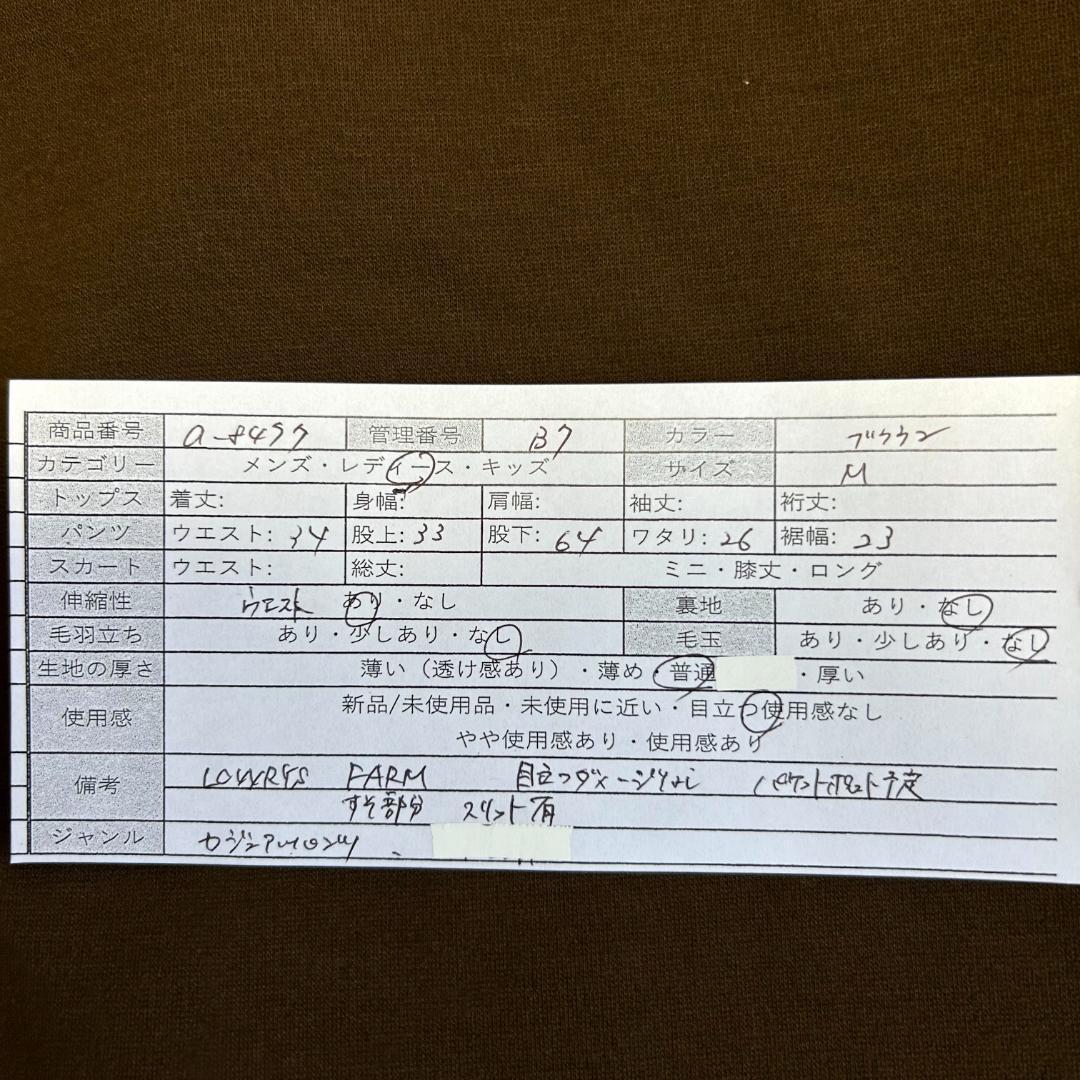 商品番号 a-8497 管理番号 B7 カラー ブラウン
カテゴリー メンズ・レディース・キッズ サイズ M
トップス 着丈: 身幅: 肩幅: 袖丈: 裄丈:
パンツ ウエスト: 34 股上: 33 股下: 64 ワタリ: 26 裾幅: 23
スカート ウエスト: 総丈: ミニ・膝丈・ロング
伸縮性 ウエスト あり・なし 裏地 あり・なし
毛羽立ち あり・少しあり・なし 毛玉 あり・少しあり・なし
生地の厚さ 薄い（透け感あり）・薄め・普通 ・厚い
使用感 新品/未使用品・未使用に近い・目立つ使用感なし
やや使用感あり・使用感あり
備考 LOWRYS FARM 目立つダメージなし 予定
すそ部分 スリット有
ジャンル カジュアルパンツ